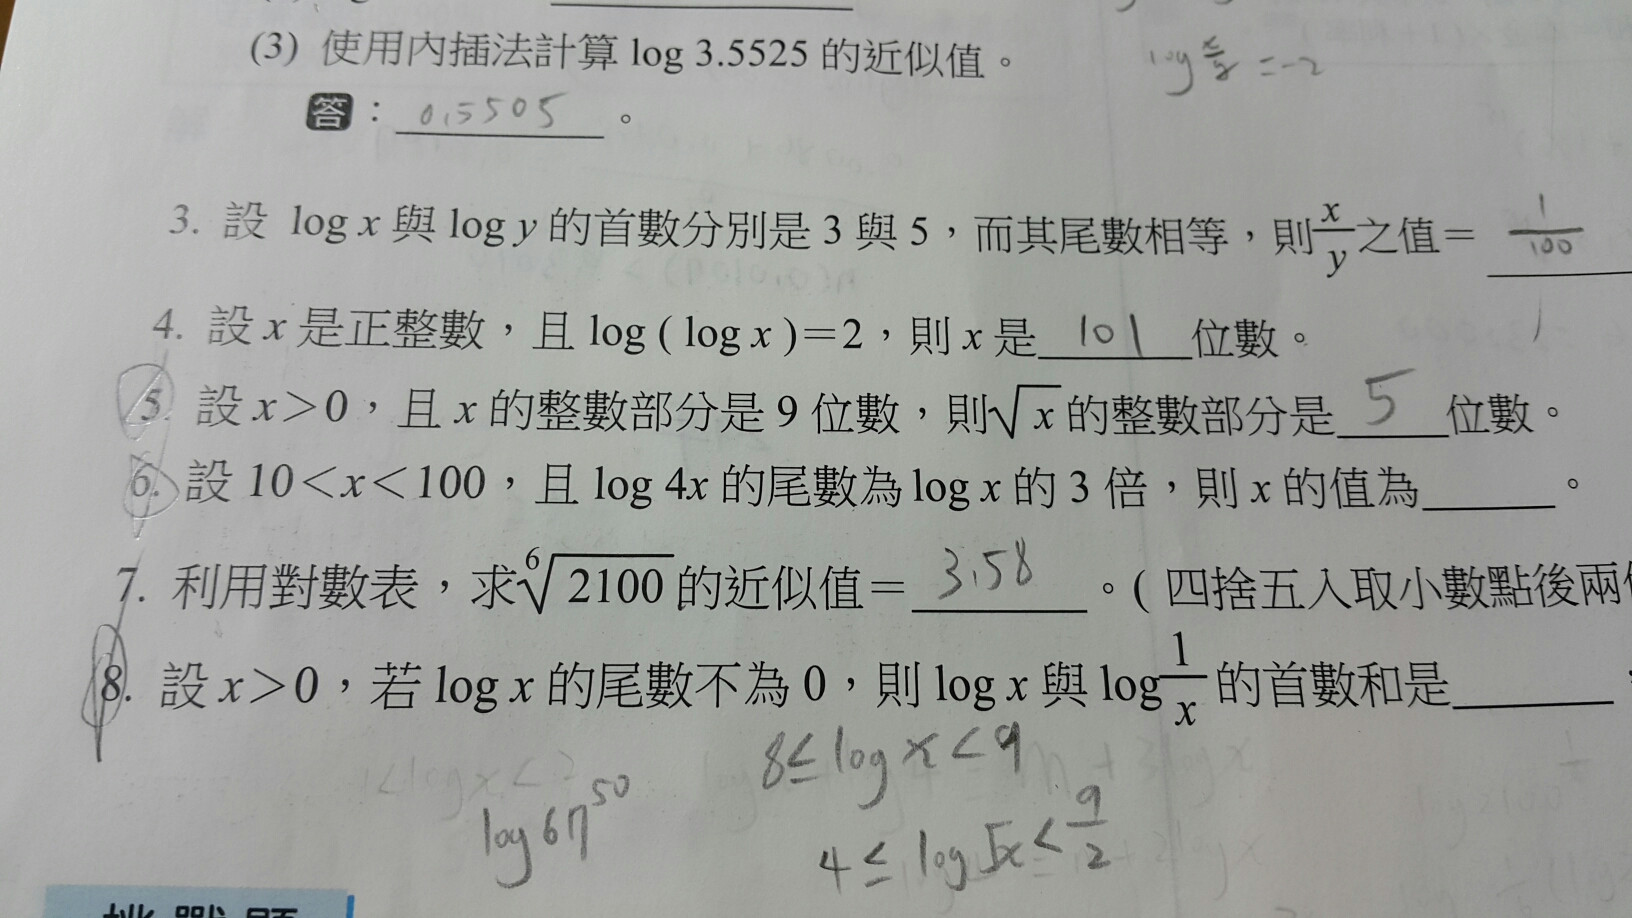 (3) 使用內插法計算 log 3.5525 的近似值。
log x/y = -2
答：0.5505。
3. 設 log x 與 log y 的首數分別是 3 與 5，而其尾數相等，則 x/y 之值＝ 1/100
4. 設 x 是正整數，且 log ( log x )＝2，則 x 是 101 位數。
5. 設 x＞0，且 x 的整數部分是 9 位數，則√x 的整數部分是 5 位數。
6. 設 10＜x＜100，且 log 4x 的尾數為 log x 的 3 倍，則 x 的值為______。
7. 利用對數表，求 ⁶√2100 的近似值＝ 3.58 。( 四捨五入取小數點後兩
8. 設 x＞0，若 log x 的尾數不為 0，則 log x 與 log 1/x 的首數和是______
8 ≤ log x < 9
log 67⁵⁰
4 ≤ log √x < 9/2
挑戰題